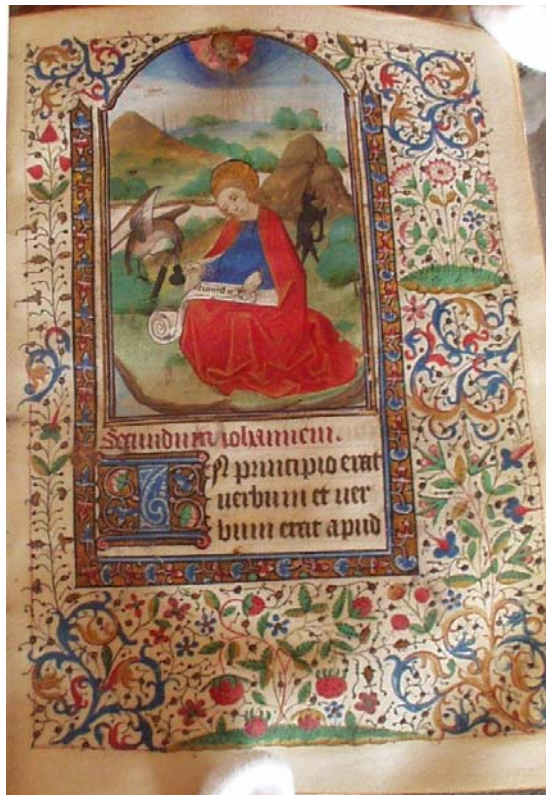 Secundum iohannem.
IN principio erat
uerbum et uer
bum erat apud